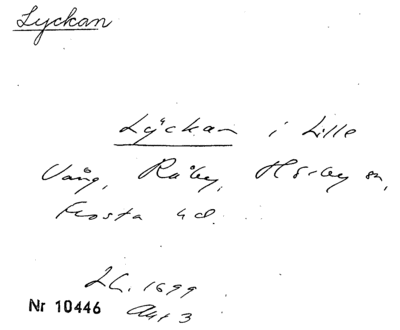 Lyckan
Lÿckan i Lille
Vång, Råby, Hörby sn,
Frosta hd.
LG. 1699
Akt 3
Nr 10446